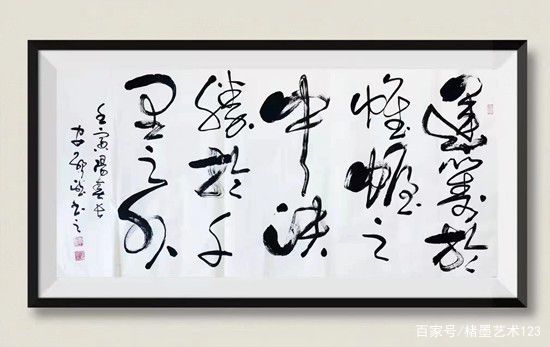 運籌於
帷幄之
中決
勝於千
里之外
壬寅陽春
書之
百家号/楮墨艺术123